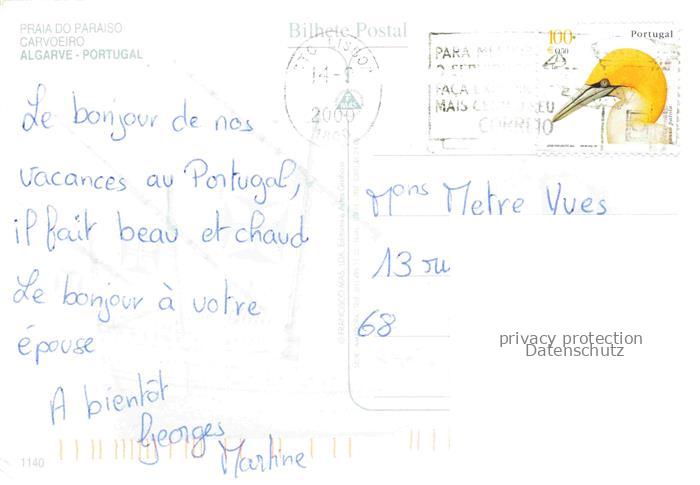 PRAIA DO PARAISO
CARVOEIRO
ALGARVE - PORTUGAL
Bilhete Postal
2000
PARA
FAÇA
MAIS CEDO SEU
CORREIO
100
€ 0,50
Portugal
Le bonjour de nos
vacances au Portugal,
il fait beau et chaud
Le bonjour à votre
épouse
A bientôt
Georges
Martine
Mons Metre Yves
13 ru
68
privacy protection
Datenschutz
1140